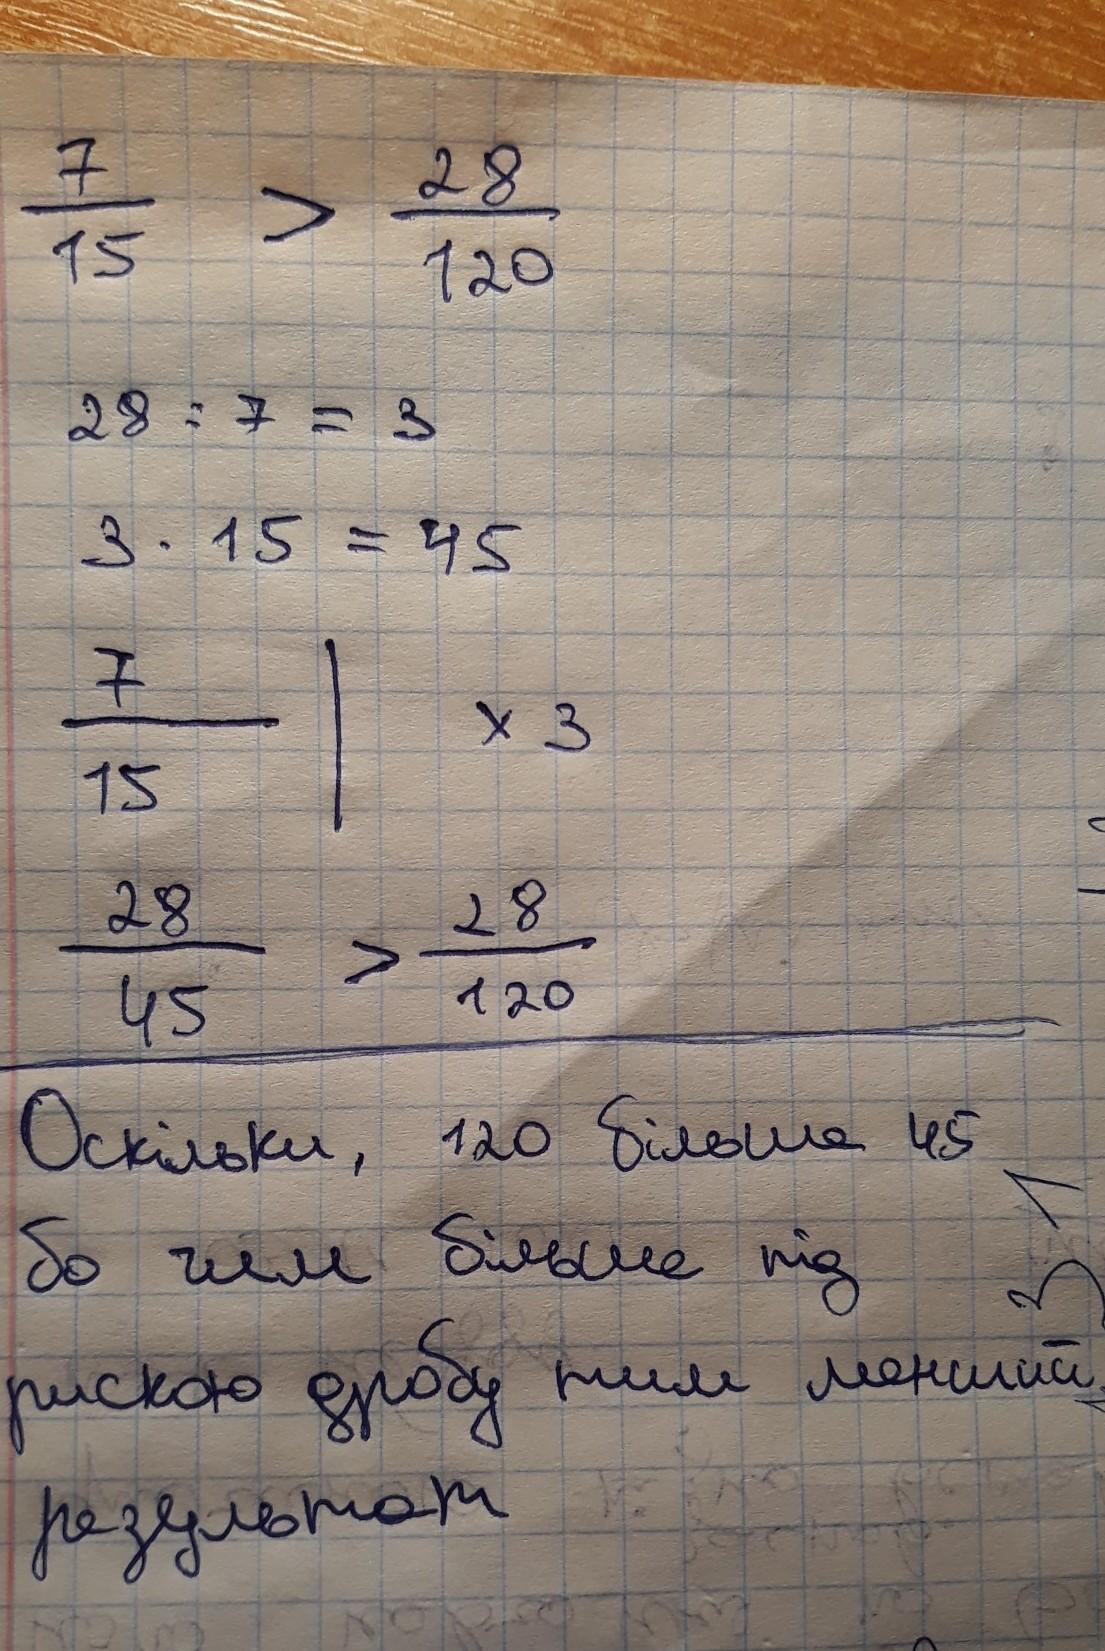 7/15 > 28/120
28 : 7 = 3
3 · 15 = 45
7/15 | × 3
28/45 > 28/120
Оскільки, 120 більше 45
бо чим більше під
рискою дробу тим менший
результат